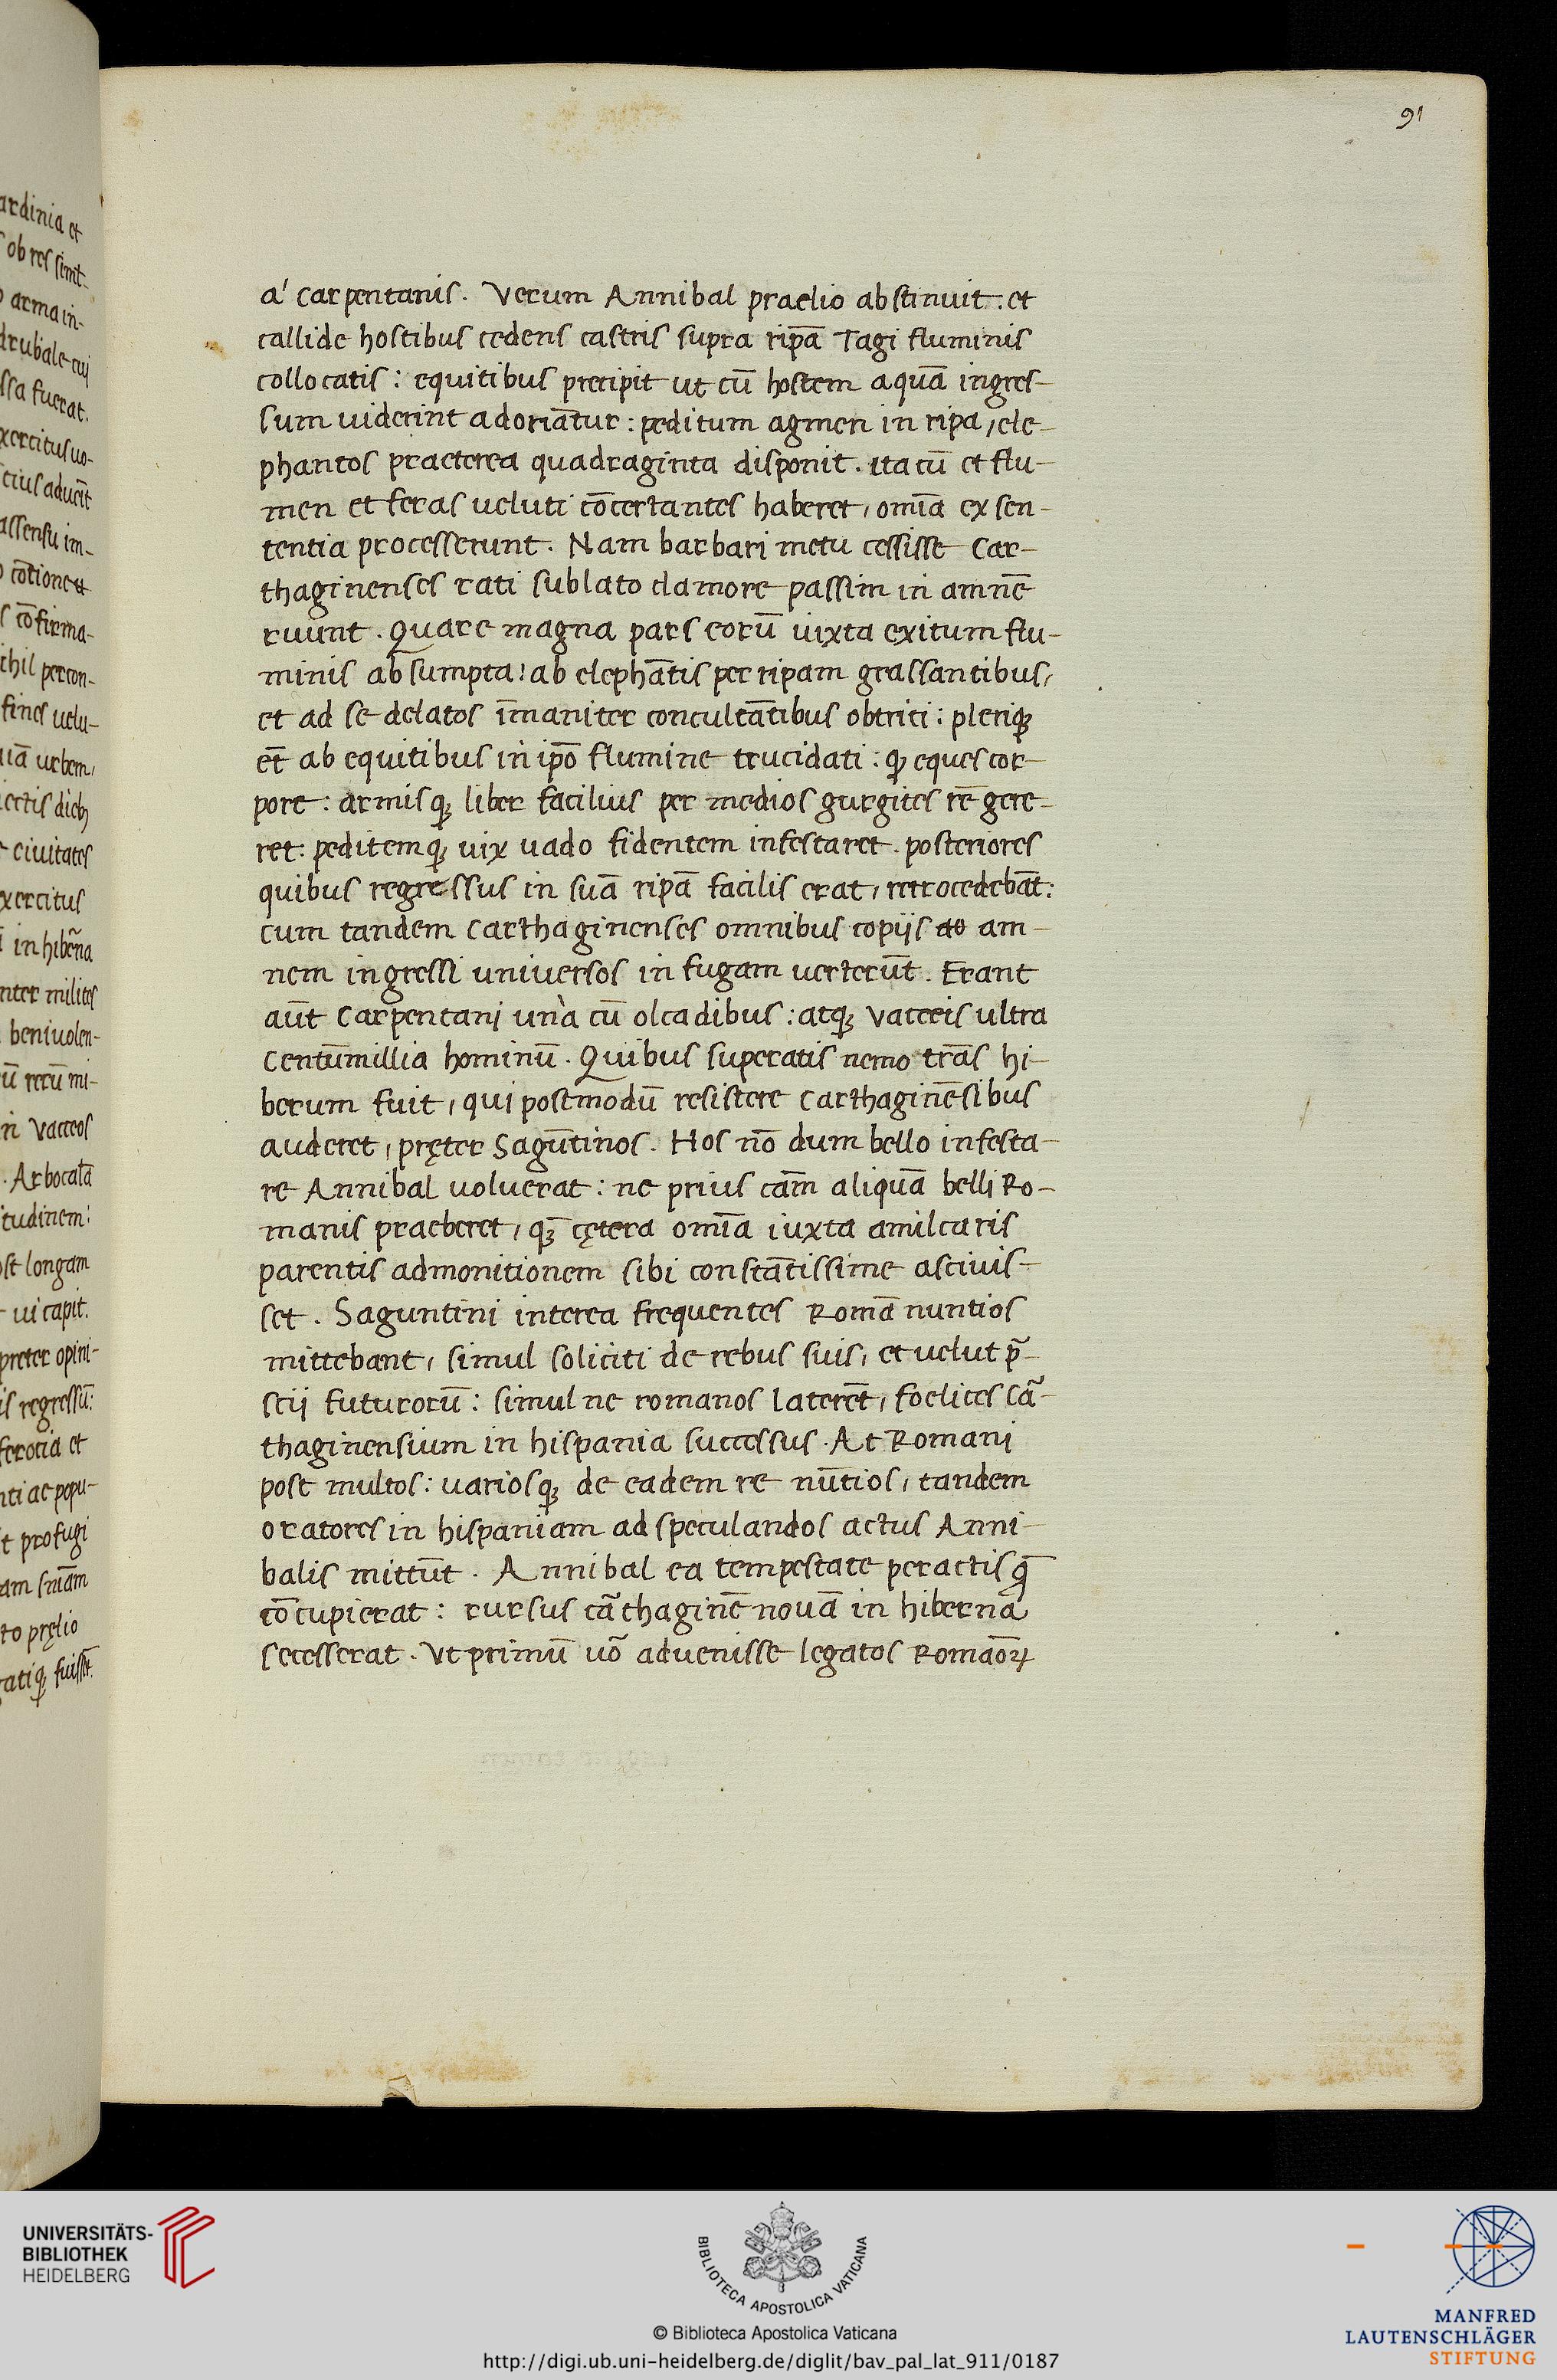 91
a' Carpentanis. Verum Annibal praelio abstinuit: et
callide hostibus cedens castris supra ripā Tagi fluminis
collocatis: equitibus precipit ut cū hostem aquā ingres-
sum uiderint adoriātur: peditum agmen in ripa, ele-
phantos praeterea quadraginta disponit. ita cū et flu-
men et feras ueluti cōcertantes haberet, omīa ex sen-
tentia processerunt. Nam barbari metu cessisse Car-
thaginenses rati sublato clamore passim in amnē
ruunt. Quare magna pars eorū iuxta exitum flu-
minis absumpta: ab elephātis per ripam grassantibus,
et ad se delatos īmaniter conculcātibus obtriti: plerique
ēt ab equitibus in ipō flumine trucidati: q; eques cor-
pore: armisq; liber facilius per medios gurgites rē gere-
ret: peditemq; uix uado fidentem infestaret. posteriores
quibus regressus in suā ripā facilis erat, retrocedebāt:
cum tandem Carthaginenses omnibus copijs am-
nem ingressi universos in fugam uerterūt. Erant
aūt Carpentani unà cū olcadibus: atq; vacceis ultra
Centummillia hominū. Quibus superatis nemo trās hi-
berum fuit, qui postmodū resistere Carthaginēsibus
auderet, pręter Sagūtinos. Hos nō dum bello infesta-
re Annibal uoluerat: ne prius cām aliquā belli Ro-
manis praeberet, q; cętera omīa iuxta amilcaris
parentis admonitionem sibi constātissime asciuis-
set. Saguntini interea frequentes Romā nuntios
mittebant, simul soliciti de rebus suis, et uelut p̄-
scij futurorū: simul ne romanos laterēt, foelices Cā-
thaginensium in hispania successus. At Romani
post multos: variosq; de eadem re nūtios, tandem
oratores in hispaniam ad speculandos actus Anni-
balis mittūt. Annibal ea tempestate peractis q̄
cōcupierat: rursus cāthaginē novā in hiberna
secesserat. Vt primū uō aduenisse legatos Romāoꝝ
UNIVERSITÄTS-
BIBLIOTHEK
HEIDELBERG
BIBLIOTECA APOSTOLICA VATICANA
© Biblioteca Apostolica Vaticana
http://digi.ub.uni-heidelberg.de/diglit/bav_pal_lat_911/0187
MANFRED
LAUTENSCHLÄGER
STIFTUNG